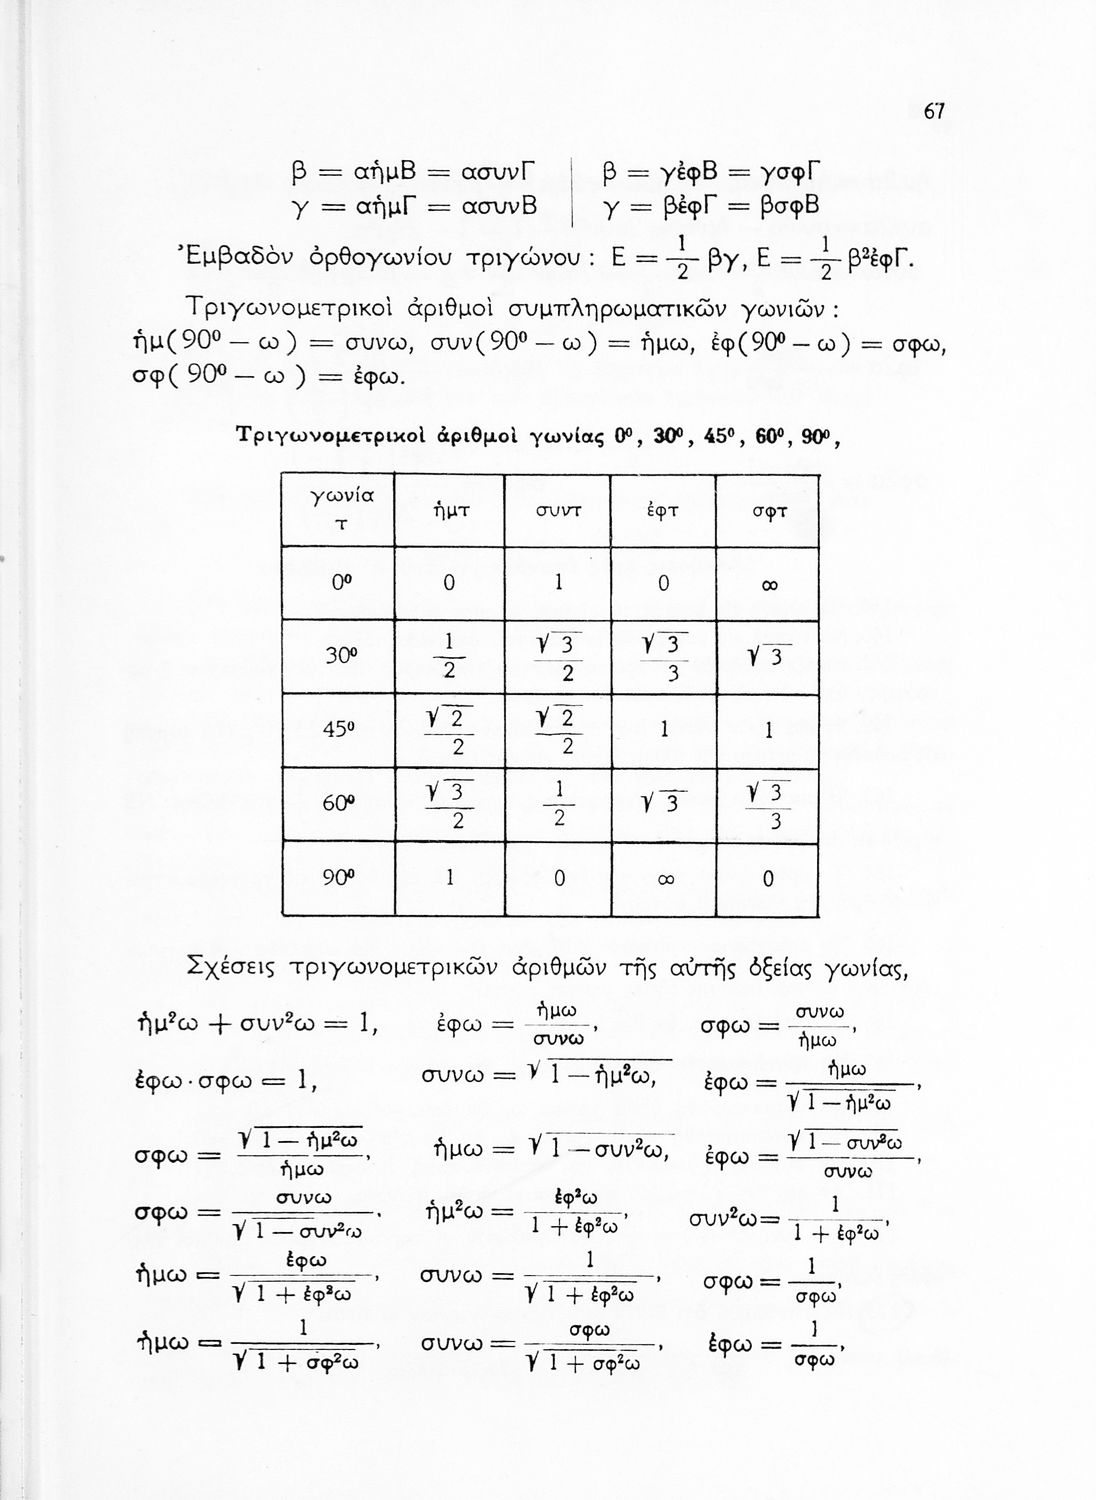 67
β = αἡμΒ = ασυνΓ | β = γἐφΒ = γσφΓ
γ = αἡμΓ = ασυνΒ | γ = βἐφΓ = βσφΒ
Ἐμβαδὸν ὀρθογωνίου τριγώνου : Ε = 1/2 βγ, Ε = 1/2 β²ἐφΓ.
Τριγωνομετρικοὶ ἀριθμοὶ συμπληρωματικῶν γωνιῶν :
ἡμ(90⁰ — ω) = συνω, συν(90⁰ — ω) = ἡμω, ἐφ(90⁰ — ω) = σφω,
σφ( 90⁰ — ω ) = ἐφω.
Τριγωνομετρικοὶ ἀριθμοὶ γωνίας 0⁰, 30⁰, 45⁰, 60⁰, 90⁰,
γωνία τ | ἡμτ | συντ | ἐφτ | σφτ
0⁰ | 0 | 1 | 0 | ∞
30⁰ | 1/2 | √3/2 | √3/3 | √3
45⁰ | √2/2 | √2/2 | 1 | 1
60⁰ | √3/2 | 1/2 | √3 | √3/3
90⁰ | 1 | 0 | ∞ | 0
Σχέσεις τριγωνομετρικῶν ἀριθμῶν τῆς αὐτῆς ὀξείας γωνίας,
ἡμ²ω + συν²ω = 1, ἐφω = ἡμω/συνω, σφω = συνω/ἡμω,
ἐφω · σφω = 1, συνω = √(1 — ἡμ²ω), ἐφω = ἡμω/√(1 — ἡμ²ω),
σφω = √(1 — ἡμ²ω)/ἡμω, ἡμω = √(1 — συν²ω), ἐφω = √(1 — συν²ω)/συνω,
σφω = συνω/√(1 — συν²ω). ἡμ²ω = ἐφ²ω/(1 + ἐφ²ω), συν²ω = 1/(1 + ἐφ²ω),
ἡμω = ἐφω/√(1 + ἐφ²ω), συνω = 1/√(1 + ἐφ²ω), σφω = 1/σφω,
ἡμω = 1/√(1 + σφ²ω), συνω = σφω/√(1 + σφ²ω), ἐφω = 1/σφω,